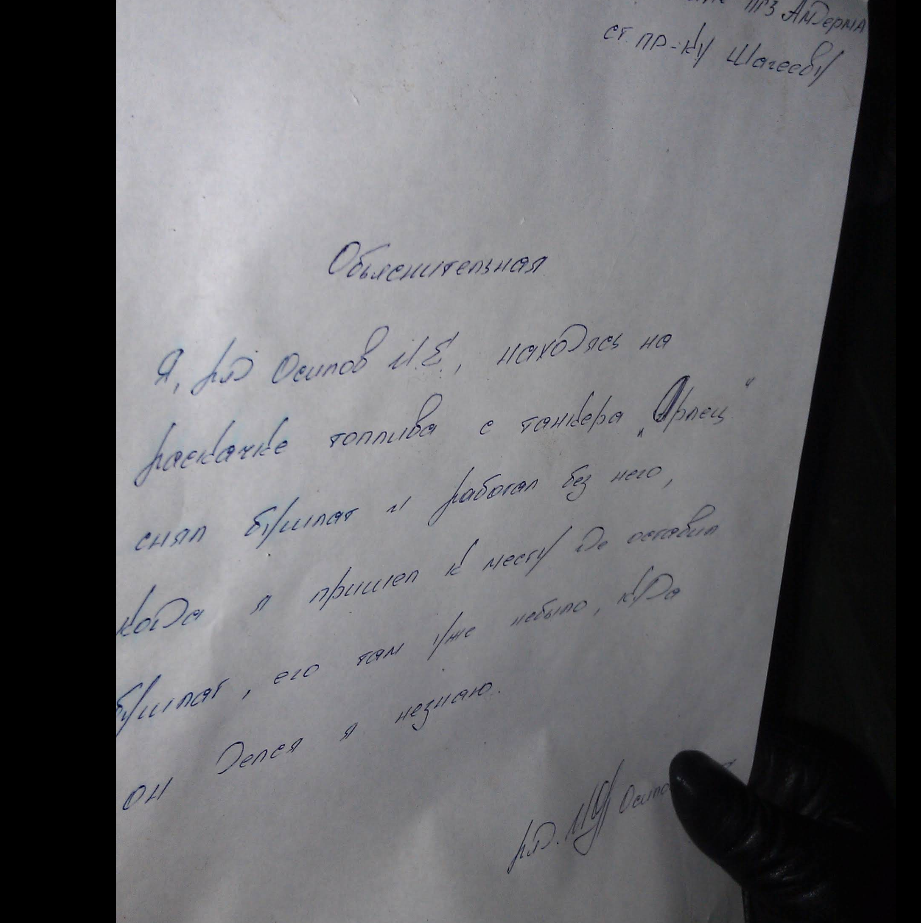 ПГЗ Амдерма
ст. пр-ку Шагееву
Объяснительная
Я, ряд Осипов И.Е., находясь на
раскачке топлива с танкера „Орлец"
снял бушлат и работал без него,
когда я пришел к месту де оставил
бушлат, его там уже небыло, куда
он делся я незнаю.
ряд.